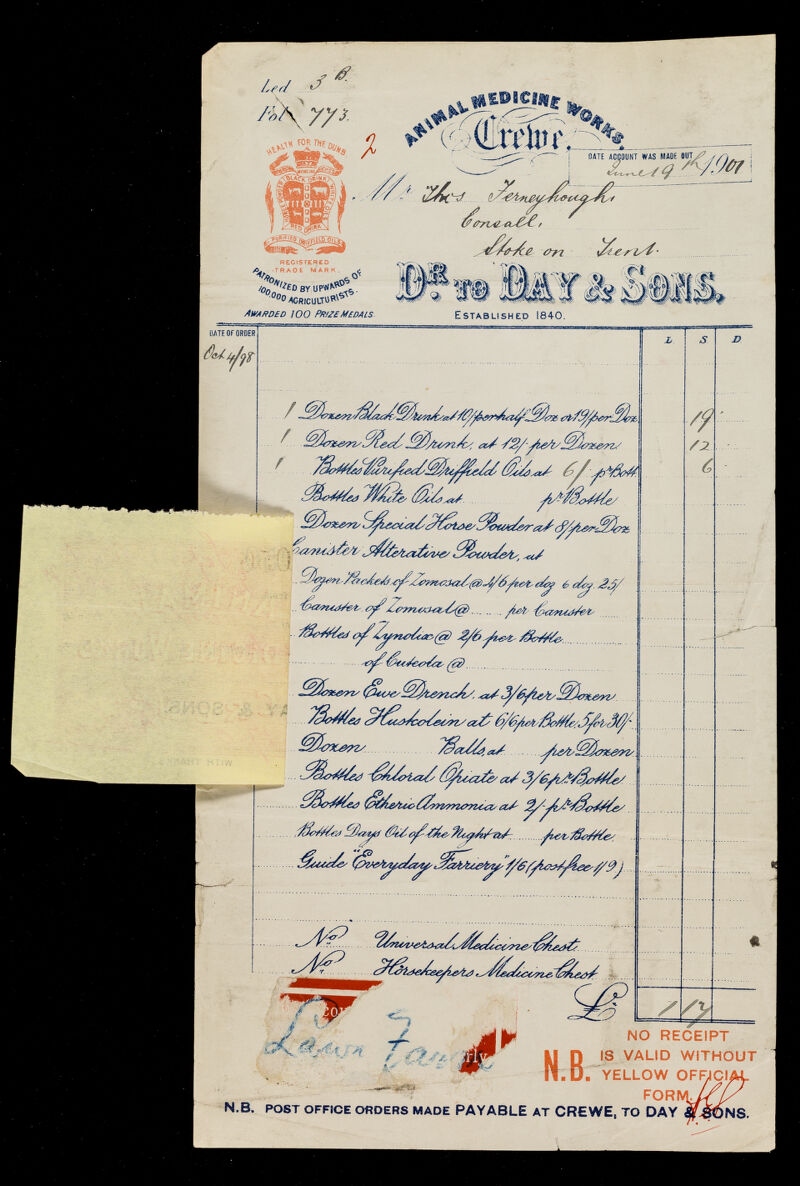 Led 3 B.
Fol 773.
2
ANIMAL MEDICINE WORKS,
Crewe.
DATE ACCOUNT WAS MADE OUT
June 19th 1901
HEALTH FOR THE DUMB
BLACK DRINK
RED DRINK
PURIFIED DRIFFIELD OILS
REGISTERED
TRADE MARK
Mr Thos Ferneyhough,
Consall,
Stoke on Trent.
PATRONIZED BY UPWARDS OF
100,000 AGRICULTURISTS.
AWARDED 100 PRIZE MEDALS
DR. TO DAY & SONS.
ESTABLISHED 1840.
DATE OF ORDER
L S D
Oct 4/98
1 Dozen Black Drink at 10/ per half Doz or 19/ per Doz 19
1 Dozen Red Drink, at 12/- per Dozen 12
1 Bottles Purified Driffield Oils at 6/ pr Bott 6
Bottles White Oils at pr Bottle
Dozen Special Horse Powder at 8/ per Doz
Canister Alterative Powder, at
Dozen Packets of Zomosal @ 4/6 per doz 6 doz 25/
Canister of Zomosal @ per Canister
Bottles of Zynolix @ 2/6 per Bottle
of Cuteola @
Dozen Ewe Drench, at 3/6 per Dozen
Bottles Huskolein at 6/6 per Bottle, 5 for 30/-
Dozen Balls, at per Dozen
Bottles Chloral Opiate at 3/6 pr Bottle
Bottles Etheric Ammonia at 2/- pr Bottle
Bottles Days Oil of the Night at per Bottle.
Guide "Everyday Farriery" 1/6 (post free 1/9)
No Universal Medicine Chest
No Horsekeepers Medicine Chest
£ 1 17
NO RECEIPT
N.B. IS VALID WITHOUT
YELLOW OFFICIAL
FORM.
N.B. POST OFFICE ORDERS MADE PAYABLE AT CREWE, TO DAY & SONS.
& SONS
WITH THANKS